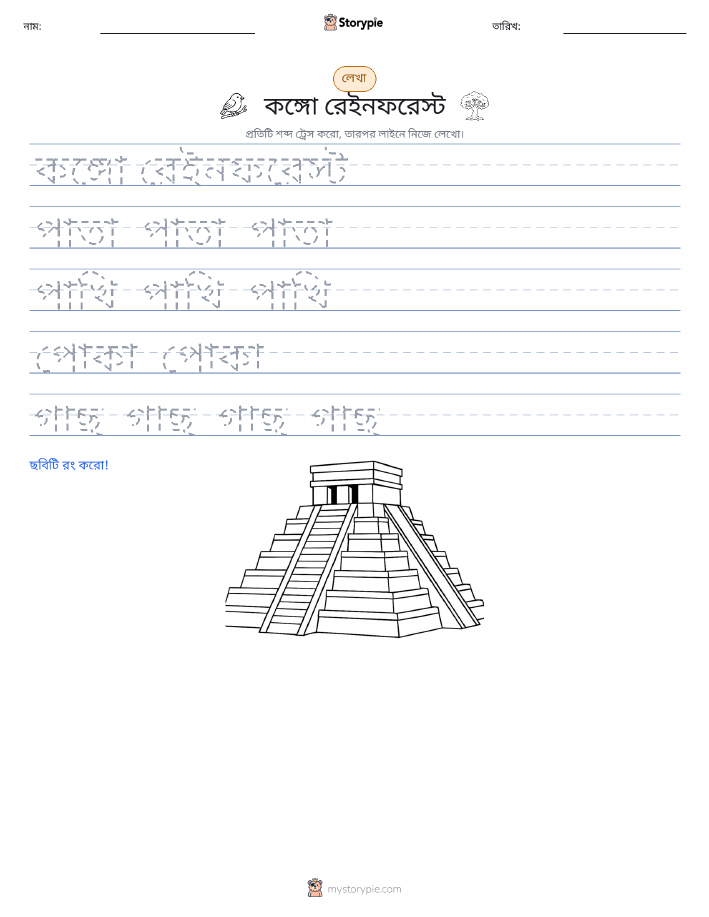 নাম:
Storypie
তারিখ:
লেখা
কঙ্গো রেইনফরেস্ট
প্রতিটি শব্দ ট্রেস করো, তারপর লাইনে নিজে লেখো।
কঙ্গো রেইনফরেস্ট
পাতা পাতা পাতা
পাখি পাখি পাখি
পোকা পোকা
গাছ গাছ গাছ গাছ
ছবিটি রং করো!
mystorypie.com